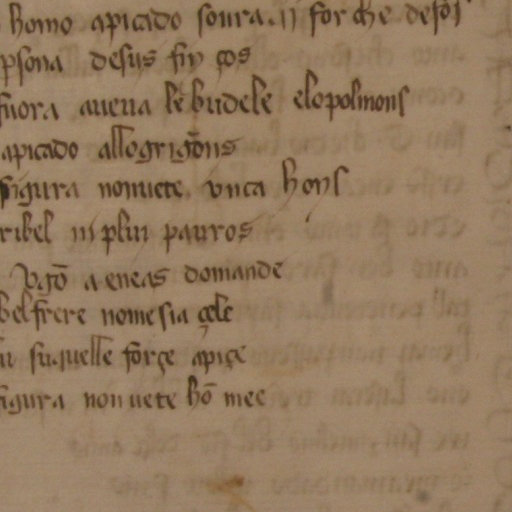 homo apicado soura .ij forche desor
psona desus fin ços
fuora aueua le budele elopolmons
apicado allogrignons
figura nonuete unca hons
ribel ni plui pauros
Ugo aeneas domande
bel frere nomesia çele
su quelle forçe apiçe
figura non uete ho mee